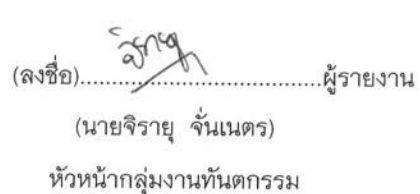 (ลงชื่อ)........................................ผู้รายงาน
(นายจิรายุ จั่นเนตร)
หัวหน้ากลุ่มงานทันตกรรม